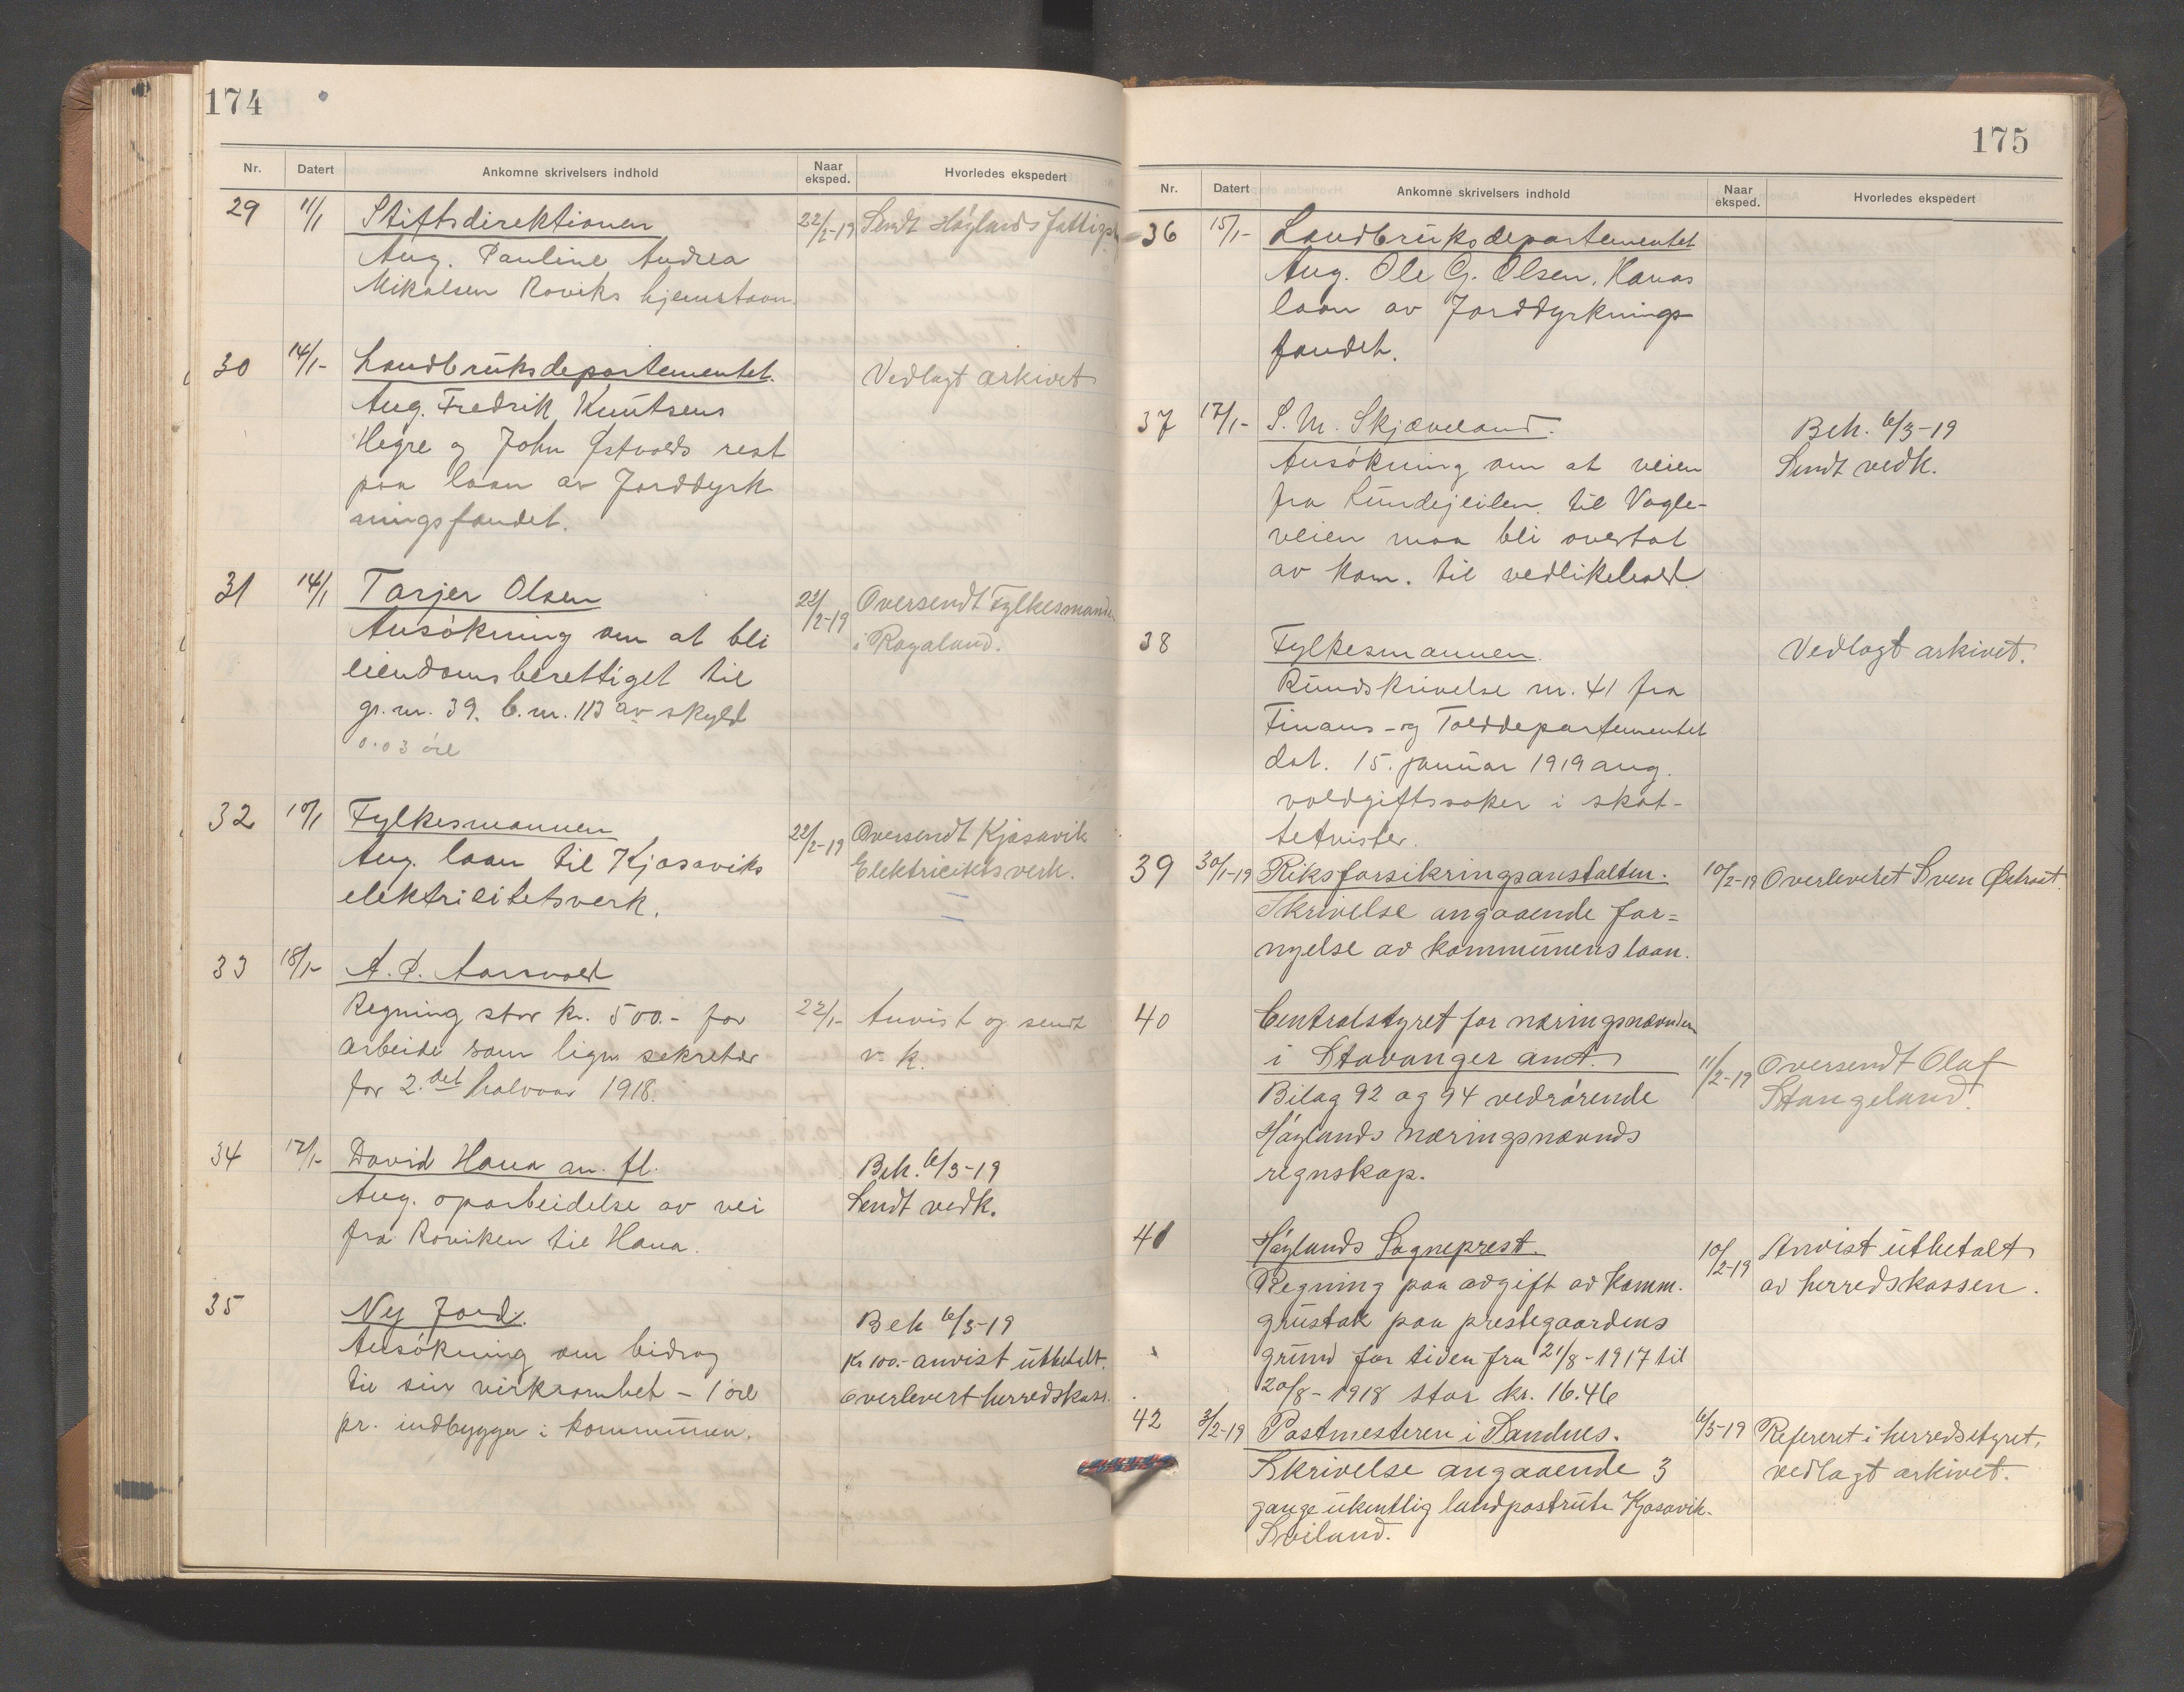 174
Nr. Datert Ankomne skrivelsers indhold Naar eksped. Hvorledes ekspedert
29 11/1 Stiftsdirektionen 22/1-19 Sendt Höylands
Ang. Pauline Andrea
Mikalsen Roviks hjemstavn.
30 14/1- Landbruksdepartementet. Vedlagt arkivet
Ang. Fredrik Knutsens
Hegre og John Østvolds rest
paa laan av Jorddyrk
ningsfondet.
31 14/1 Tarjer Olsen 22/2-19 Oversendt Fylkesmanden
Ansökning om at bli i Rogaland.
eiendomsberettiget til
gr.nr. 39. b.nr. 113 av skyld
0.03 öre
32 10/1 Fylkesmannen 22/2-19 Oversendt Kjosavik
Ang. laan til Kjosaviks Elektricitetsverk.
elektricitetsverk.
33 18/1- A. P. Aarsvold
Regning stor kr. 500.- for 22/1- Anvist og sendt
arbeide som lign. sekretær v. k.
for 2.det halvaar 1918.
34 17/1- David Hana m. fl. Beh. 6/3-19
Ang. oparbeidelse av vei Sendt vedk.
fra Roviken til Hana.
35 Ny Jord. Beh 6/3-19
Ansökning om bidrag Kr 100.- anvist utbetalt.
til sin virksomhet - 1 öre overlevert herredskass.
pr. indbygger i kommunen.
175
Nr. Datert Ankomne skrivelsers indhold Naar eksped. Hvorledes ekspedert
36 15/1- Landbruksdepartementet
Ang. Ole G. Olsen, Hanas
laan av Jorddyrknings
fondet.
37 17/1- S. M. Skjæveland. Beh. 6/3-19
Ansökning om at veien Sendt vedk.
fra Lundejeilen til Vagle-
veien maa bli overtat
av kom. til vedlikehold.
38 Fylkesmannen. Vedlagt arkivet.
Rundskrivelse nr. 41 fra
Finans- og Tolddepartementet
dat. 15. januar 1919 ang.
voldgiftssaker i skat-
tetvister.
39 30/1-19 Riksforsikringsanstalten. 10/2-19 Overleveret Sven
Skrivelse angaaende for=
nyelse av kommunens laan.
40 Centralstyret for næringsnævnden
i Stavanger amt. 11/2-19 Oversendt Olaf
Bilag 92 og 94 vedrörende Stangeland.
Höylands næringsnævnds
regnskap.
41 Höylands Sogneprest. 10/2-19 Anvist utbetalt
Regning paa avgift av komm. av herredskassen.
grustak paa prestegaardens
grund for tiden fra 21/8-1917 til
20/8-1918 stor kr. 16.46
42 3/2-19 Postmesteren i Sandnes. 6/3-19 Referert i herredsstyret,
Skrivelse angaaende 3 vedlagt arkivet.
gange ukentlig landpostrute Kjosavik-
Sviland.